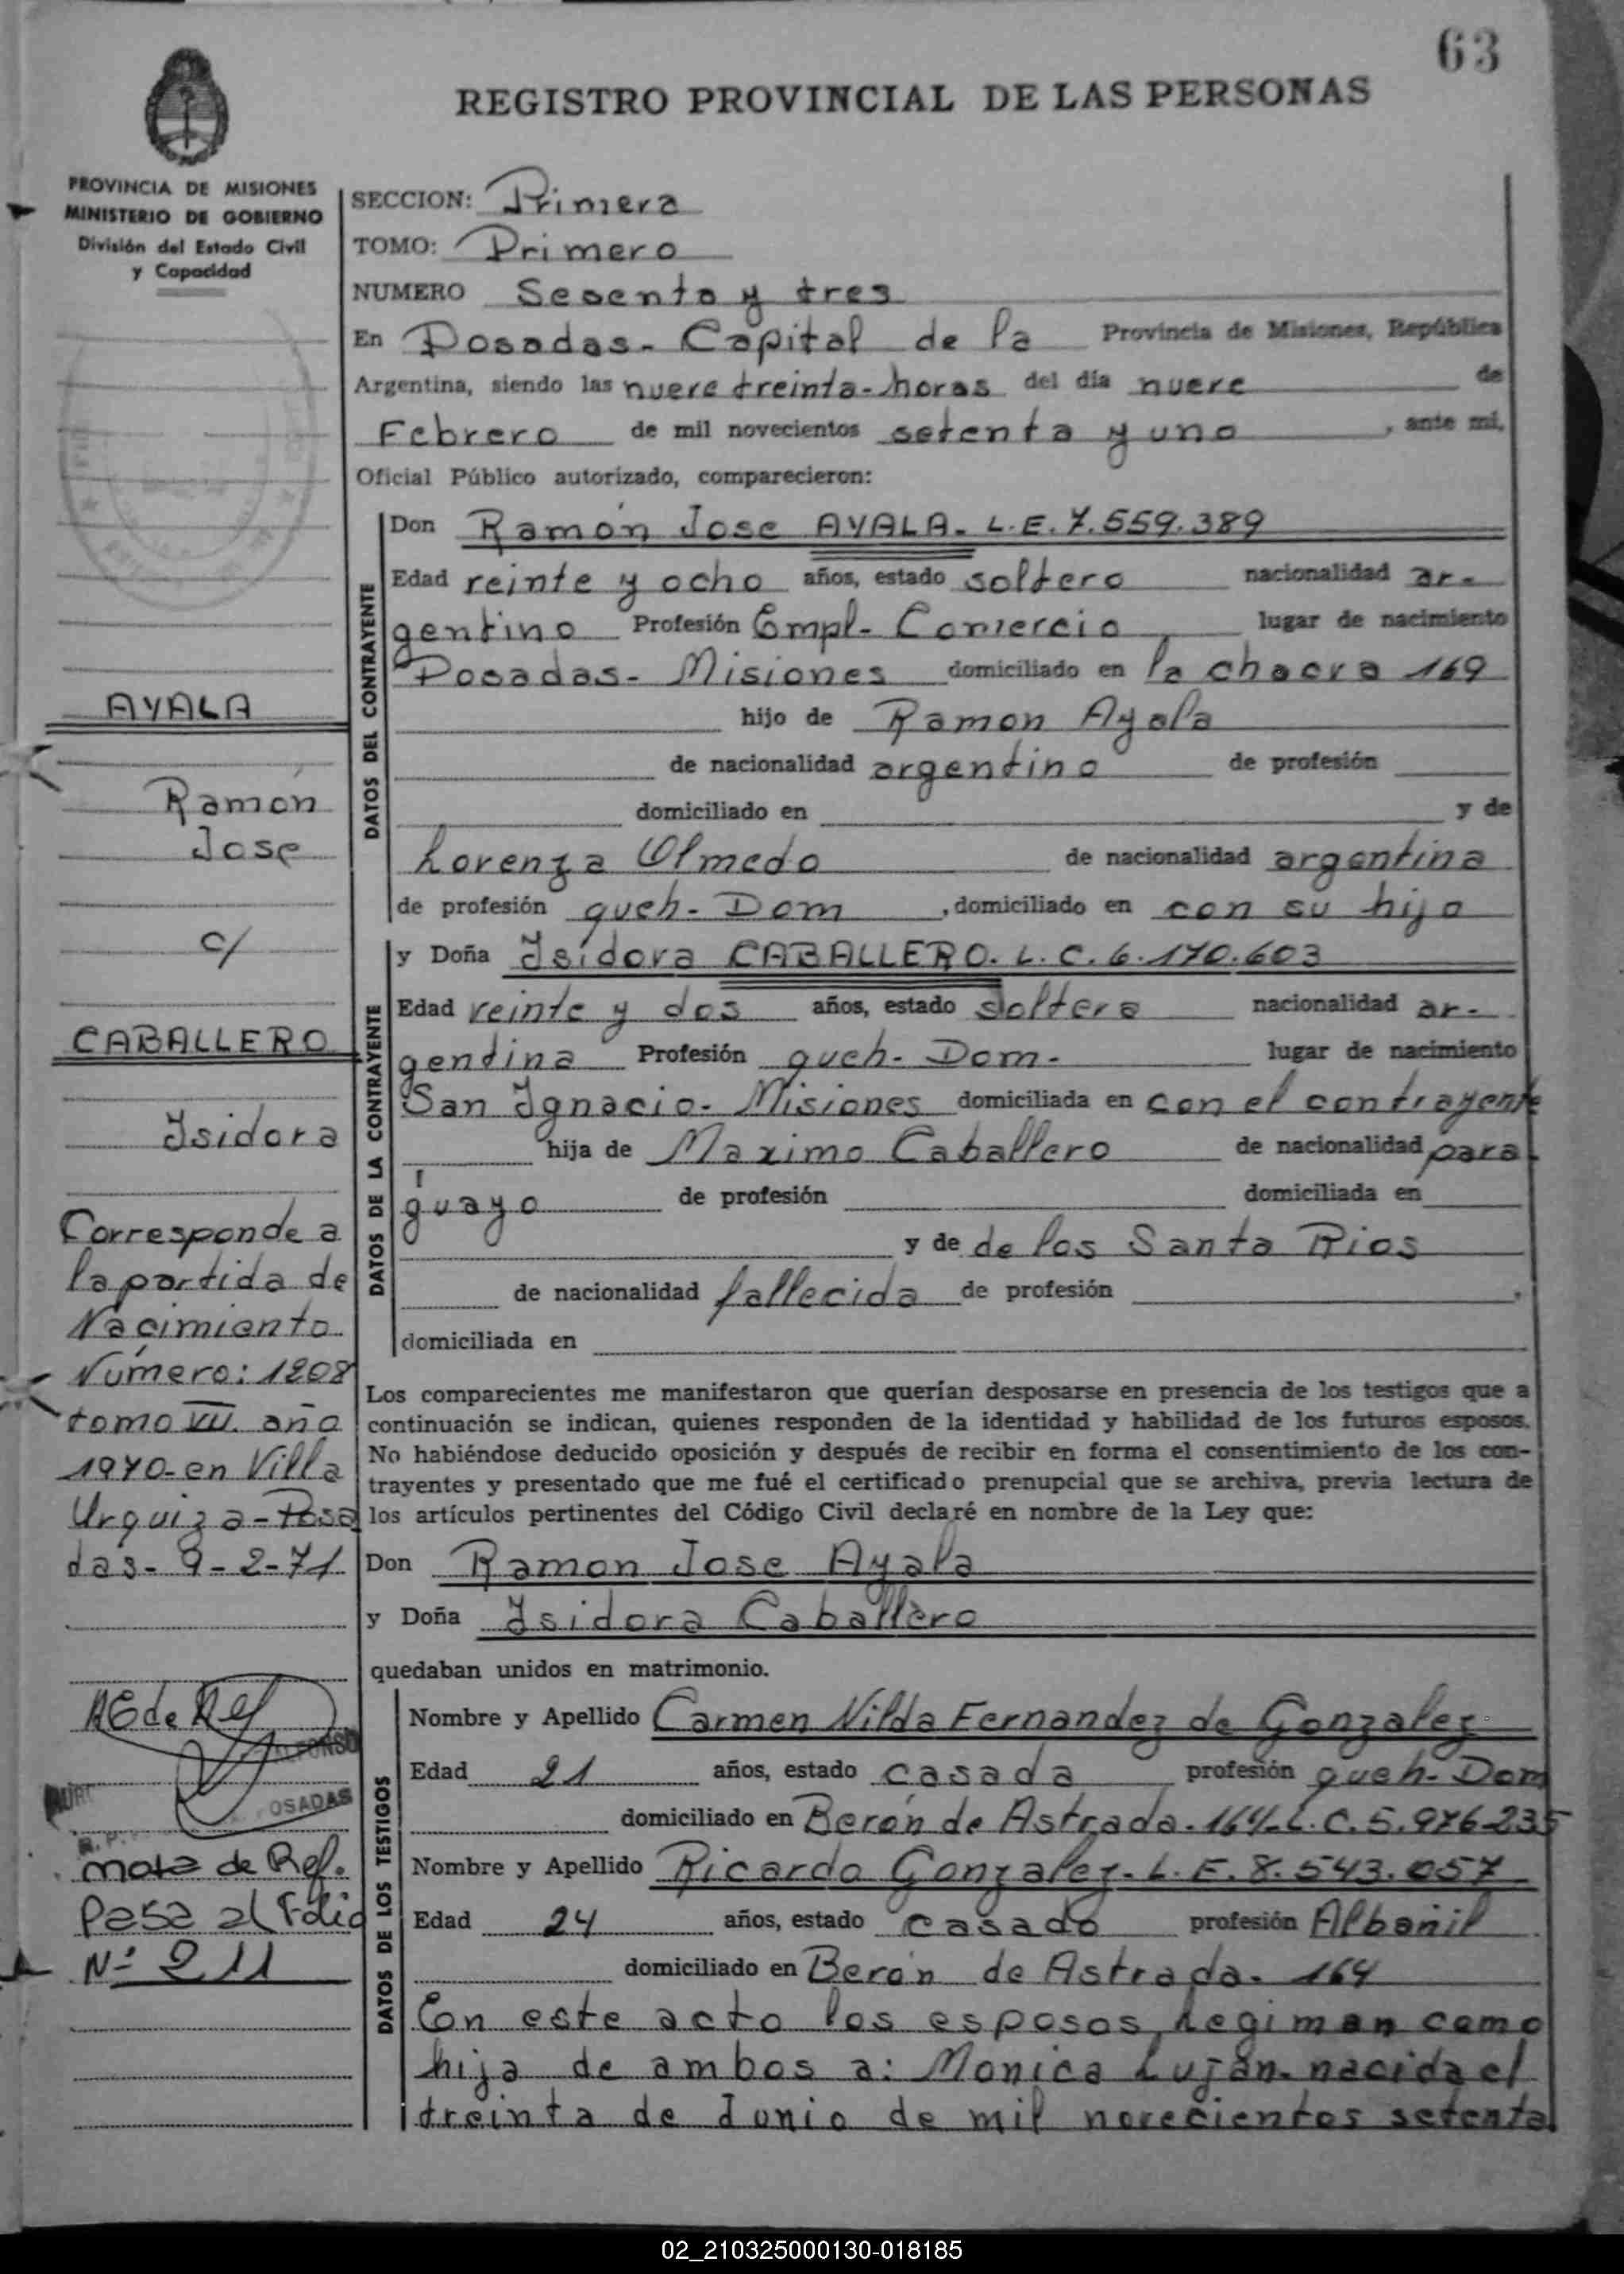 63
REGISTRO PROVINCIAL DE LAS PERSONAS
PROVINCIA DE MISIONES
MINISTERIO DE GOBIERNO
División del Estado Civil
y Capacidad
SECCION: Primera
TOMO: Primero
NUMERO Sesenta y tres
En Posadas- Capital de la Provincia de Misiones, República
Argentina, siendo las nueve treinta-horas del día nueve de
Febrero de mil novecientos setenta y uno, ante mi,
Oficial Público autorizado, comparecieron:
DATOS DEL CONTRAYENTE
Don Ramón Jose AYALA- L.E. 7.559.389
Edad veinte y ocho años, estado soltero nacionalidad ar-
gentino Profesión Empl- Comercio lugar de nacimiento
Posadas- Misiones domiciliado en la chacra 169
hijo de Ramon Ayala
de nacionalidad argentino de profesión
domiciliado en y de
Lorenza Olmedo de nacionalidad argentina
de profesión queh- Dom, domiciliado en con su hijo
DATOS DE LA CONTRAYENTE
y Doña Isidora CABALLERO. L.C. 6.170.603
Edad veinte y dos años, estado soltera nacionalidad ar-
gentina Profesión queh- Dom- lugar de nacimiento
San Ignacio- Misiones domiciliada en con el contrayente
hija de Maximo Caballero de nacionalidad para
guayo de profesión domiciliada en
y de de los Santa Rios
de nacionalidad fallecida de profesión ,
domiciliada en
Los comparecientes me manifestaron que querían desposarse en presencia de los testigos que a
continuación se indican, quienes responden de la identidad y habilidad de los futuros esposos.
No habiéndose deducido oposición y después de recibir en forma el consentimiento de los con-
trayentes y presentado que me fué el certificado prenupcial que se archiva, previa lectura de
los artículos pertinentes del Código Civil declaré en nombre de la Ley que:
Don Ramon Jose Ayala
y Doña Isidora Caballero
quedaban unidos en matrimonio.
DATOS DE LOS TESTIGOS
Nombre y Apellido Carmen Nilda Fernandez de Gonzalez
Edad 21 años, estado casada profesión queh- Dom
domiciliado en Berón de Astrada- 164-L.C. 5.976-235
Nombre y Apellido Ricardo Gonzalez- L.E. 8.543.057
Edad 24 años, estado casado profesión Albañil
domiciliado en Berón de Astrada- 164
En este acto los esposos, Legiman como
hija de ambos a: Monica Luján- nacida el
treinta de Junio de mil novecientos setenta
AYALA
Ramón
Jose
c/
CABALLERO
Isidora
Corresponde a
la partida de
Nacimiento
Número: 1208
tomo VII. año
1970-en Villa
Urquiza-Posa
das- 9-2-71
ALFONSO
POSADAS
nota de Ref.
Pasa al Folio
Nº 211
02_210325000130-018185